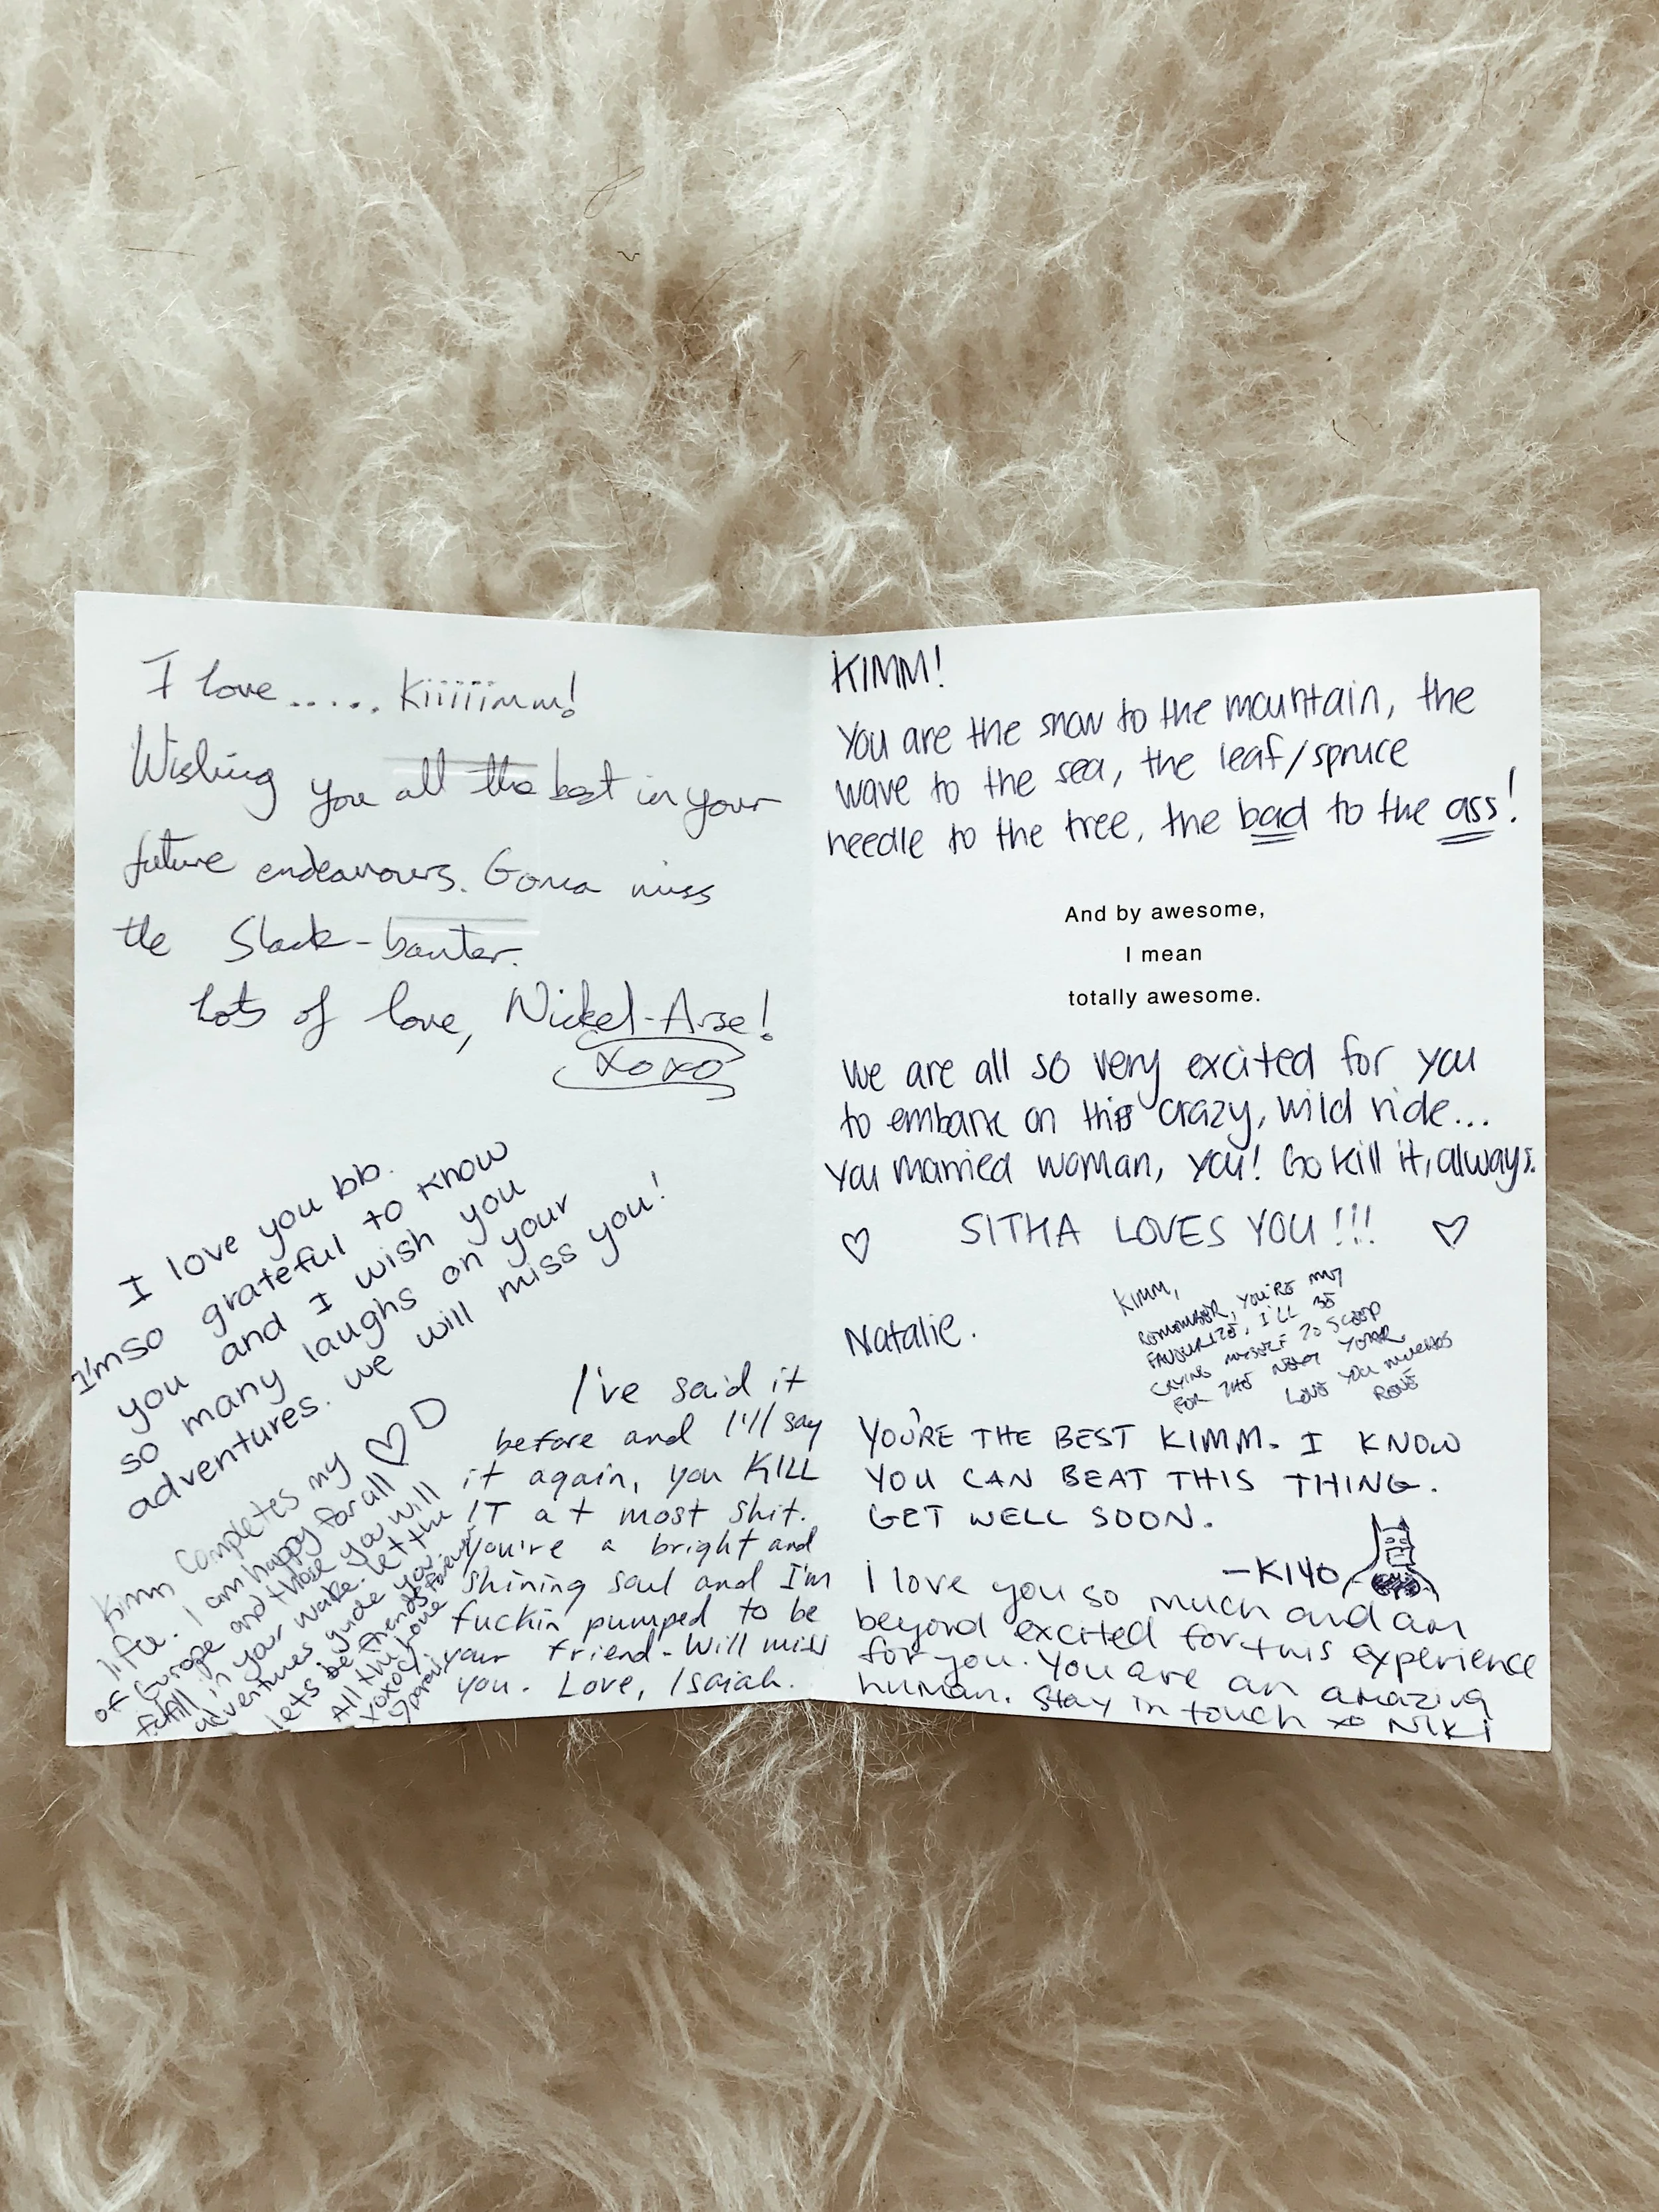 I love ..... Kiiiiimm!
Wishing you all the best in your
future endeavours. Gonna miss
the Slack-banter.
Lots of love, Nickel-Arse!
xoxo
I love you bb.
I'm so grateful to know
you and I wish you
so many laughs on your
adventures. we will miss you!
♡ D
Kimm completes my
life. I am happy for all
of Europe and those you will
fulfill in your wake. Let the
adventures guide you.
lets be friends forever
All the love
xoxox
I've said it
before and I'll say
it again, you KILL
IT at most shit.
You're a bright and
shining soul and I'm
fuckin pumped to be
your friend. Will miss
you. Love, Isaiah.
KIMM!
You are the snow to the mountain, the
wave to the sea, the leaf/spruce
needle to the tree, the bad to the ass!
And by awesome,
I mean
totally awesome.
We are all so very excited for you
to embark on this crazy, wild ride...
You married woman, you! Go kill it, always.
♡ SITHA LOVES YOU!!! ♡
Natalie.
KIMM,
REMEMBER, YOU'RE MY
FAVOURITE, I'LL BE
CRYING MYSELF TO SLEEP
FOR THE NEXT YEAR
LOVE YOU MUCHOS
YOU'RE THE BEST KIMM. I KNOW
YOU CAN BEAT THIS THING.
GET WELL SOON.
—KIYO
I love you so much and am
beyond excited for this experience
for you. You are an amazing
human. Stay in touch xo NIKI